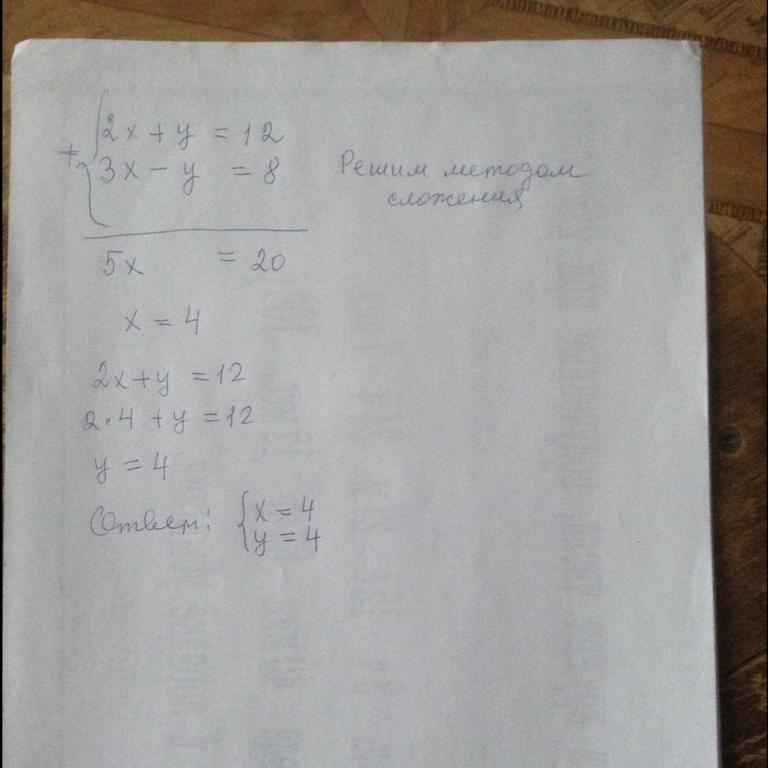 + { 2x + y = 12
3x - y = 8
Решим методом
сложения
5x = 20
x = 4
2x + y = 12
2·4 + y = 12
y = 4
Ответ: { x = 4
y = 4